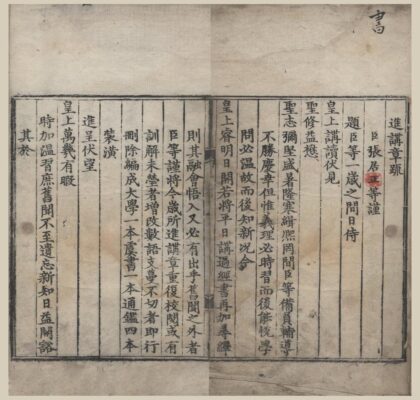 書
進講章疏
臣張居正等謹
題臣等一歲之間日侍
皇上講讀伏見
聖修益懋
聖志彌篤盛暑隆寒緝熙罔間臣等備員輔導
不勝慶幸但惟義理必時習而後能悅學
問必溫故而後知新況今
皇上睿明日開若將平日講過經書再加尋繹
則其融會悟入又必有出乎舊聞之外者
臣等謹將今歲所進講章重復校閱或有
訓解未瑩者增改數語支蔓不切者即行
刪除編成大學一本虞書一本通鑑四本
裝潢
進呈伏望
皇上萬幾有暇
時加溫習庶舊聞不至遺忘新知日益開豁
其於